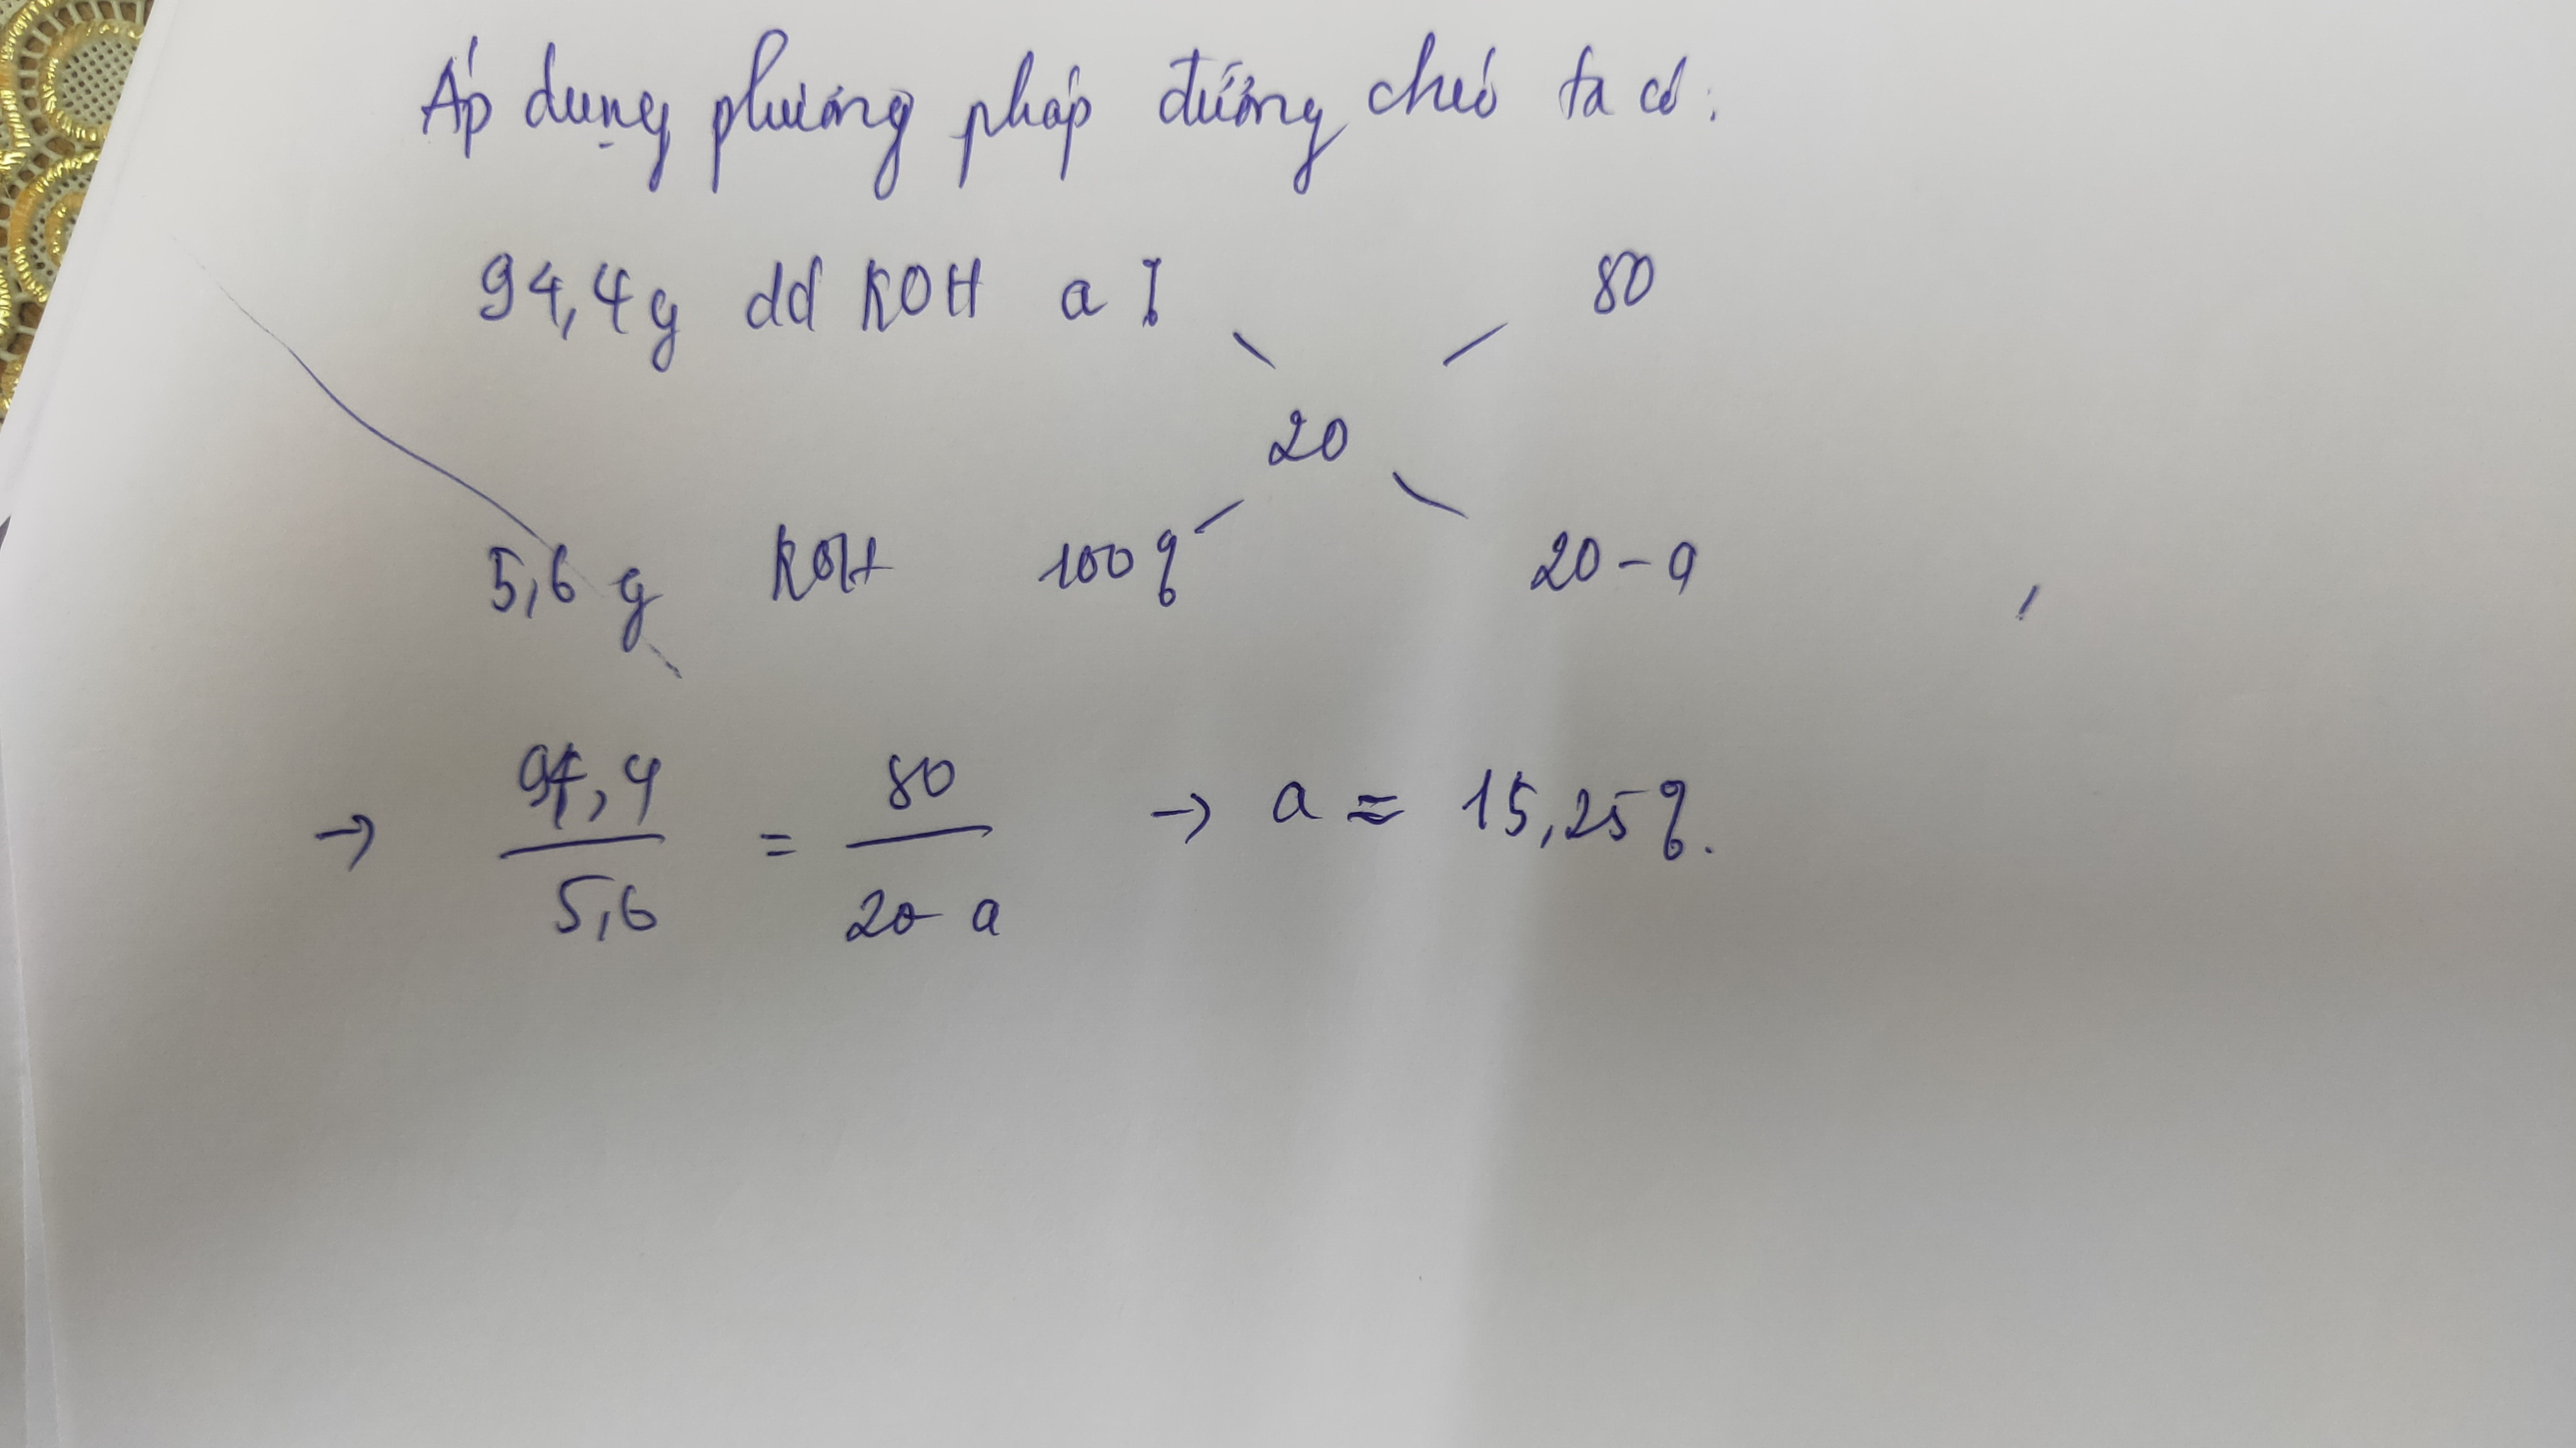 Áp dụng phương pháp đường chéo ta có:
94,4g dd KOH a % 80
20
5,6 g KOH 100% 20-a
→ 94,4 / 5,6 = 80 / 20-a → a ≈ 15,25%.